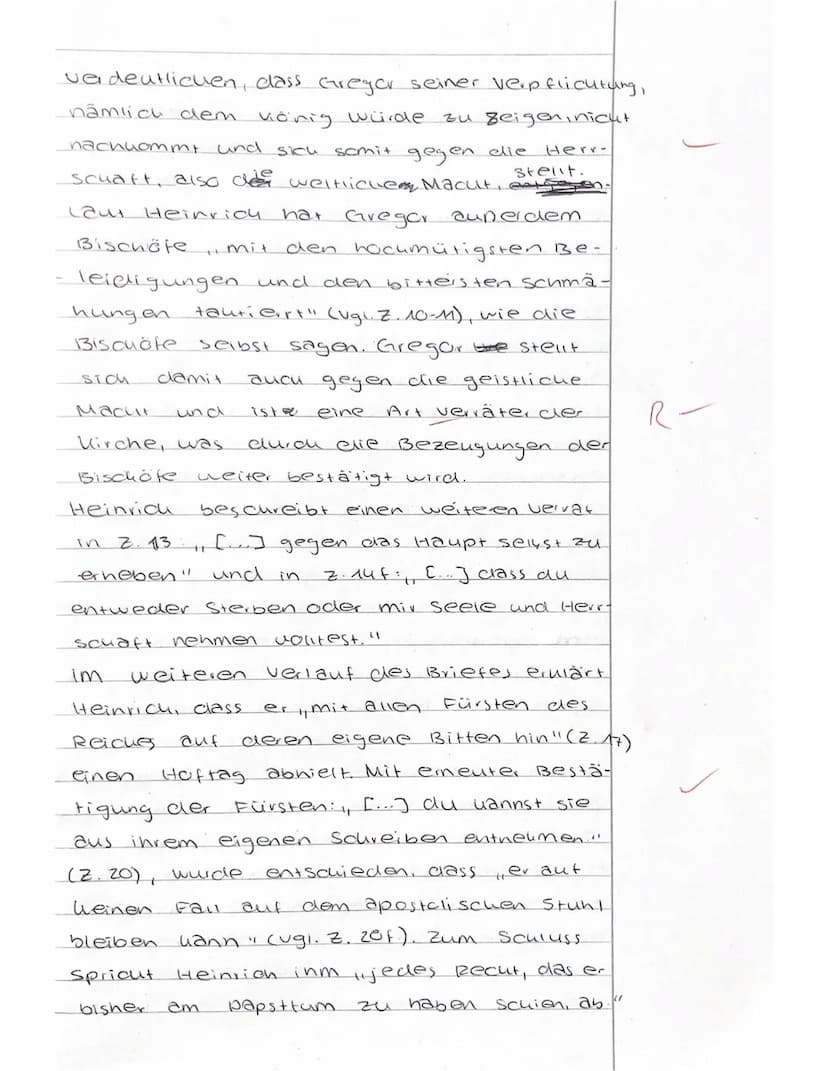 verdeutlichen, dass Gregor seiner Verpflichtung,
nämlich dem König würde zu zeigen, nicht
nachkommt und sich somit gegen die Herr-
schaft, also die weltliche Macht, stellt.
Laut Heinrich hat Gregor außerdem
Bischöfe „mit den hochmütigsten Be-
leidigungen und den bittersten Schmä-
hungen tautiert" (vgl. Z. 10-11), wie die
Bischöfe selbst sagen. Gregor stellt
sich damit auch gegen die geistliche
Macht und ist eine Art verräter der
Kirche, was durch die Bezeugungen der
Bischöfe weiter bestätigt wird.
Heinrich beschreibt einen weiteren Verrat
in Z. 13: „[...] gegen das Haupt selbst zu
erheben" und in Z. 14f: „[...] dass du
entweder Sterben oder mir Seele und Herr-
schaft nehmen volltest."
Im weiteren Verlauf des Briefes erklärt
Heinrich, dass er „mit allen Fürsten des
Reiches auf deren eigene Bitten hin" (Z. 17)
einen Hoftag abhielt. Mit erneuter Bestä-
tigung der Fürsten: „[...] du kannst sie
aus ihrem eigenen Schreiben entnehmen"
(Z. 20), wurde entschieden, dass „er auf
keinen Fall auf dem apostolischen Stuhl
bleiben kann" (vgl. Z. 20f). Zum Schluss
Spricht Heinrich ihm „jedes Recht, das er
bisher am Papsttum zu haben schien, ab."
R